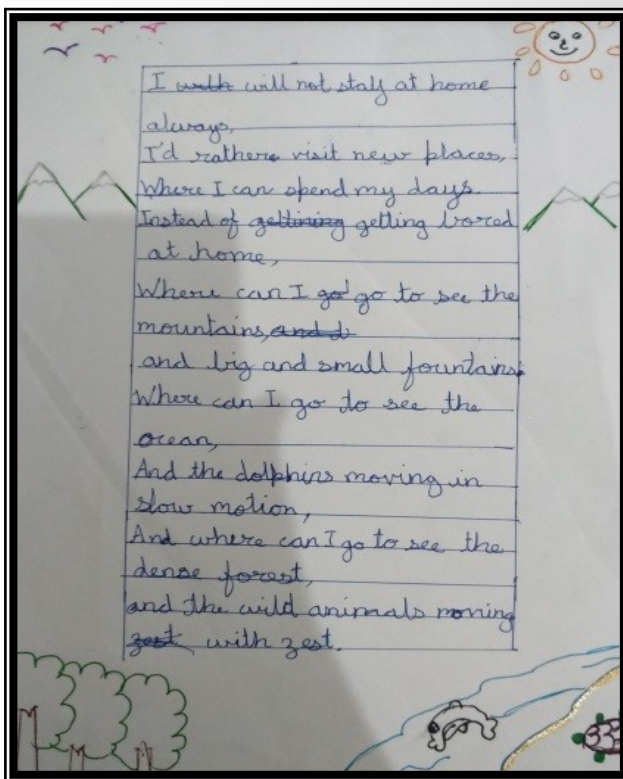 I will not stay at home
always,
I'd rather visit new places,
Where I can spend my days.
Instead of getting bored
at home,
Where can I go to see the
mountains,
and big and small fountains.
Where can I go to see the
ocean,
And the dolphins moving in
slow motion,
And where can I go to see the
dense forest,
and the wild animals moving
with zest.